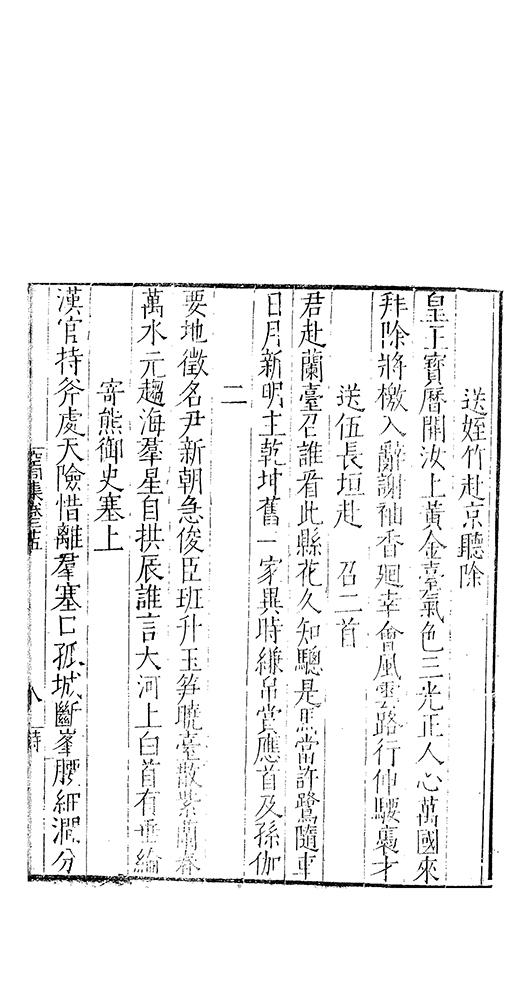 送姪竹赴京聽除
皇王寶曆開汝上黃金臺氣色三光正人心萬國來
拜除將檄入辭謝袖香廻幸會風雲路行伸騕褭才
送伍長垣赴　召二首
君赴蘭臺召誰看此縣花久知驄是馬當許鷺隨車
日月新明主乾坤舊一家異時縑帛賞應首及孫伽
二
要地徵名尹新朝急俊臣班升玉笋曉臺散紫蘭春
萬水元趨海羣星自拱辰誰言大河上白首有垂綸
寄熊御史塞上
漢官持斧處天險惜離羣塞口孤城斷峯腰細澗分
空同集卷二五
八
詩